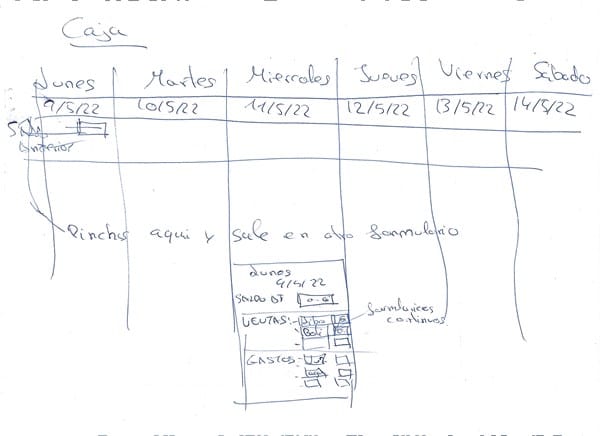 Caja
Lunes Martes Miercoles Jueves Viernes Sábado
9/5/22 10/5/22 11/5/22 12/5/22 13/5/22 14/5/22
Anterior
Pinchas aqui y sale en otro formulario
Lunes
9/5/22
SALDO
VENTAS:
formularios
continuos
GASTOS